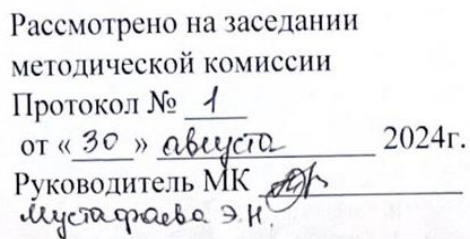 Рассмотрено на заседании
методической комиссии
Протокол № 1
от «30» августа 2024г.
Руководитель МК
Мустафаева Э.Н.